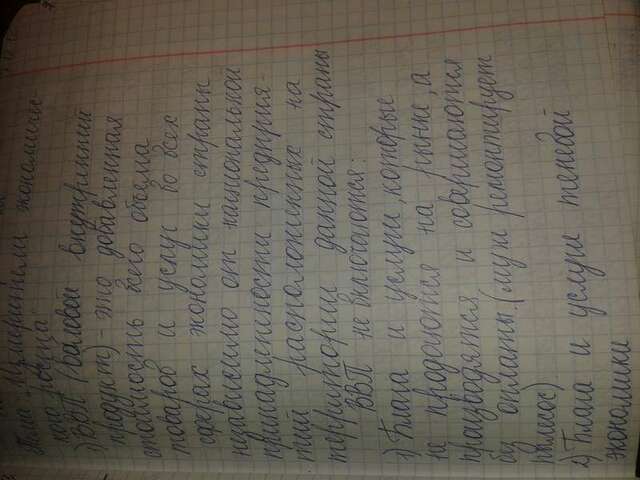 Тема: Измерители экономичес-
кого роста.
1) ВВП (валовой внутренний
продукт) - это добавленная
стоимость всего объёма
товаров и услуг во всех
сферах экономики страны
независимо от национальной
принадлежности предприя-
тий расположенных на
территории данной страны
ВВП не включаются:
1) Блага и услуги, которые
не продаются на рынке, а
производятся и совершаются
без оплаты. (муж ремонтирует
пылесос)
2) Блага и услуги теневой
экономики